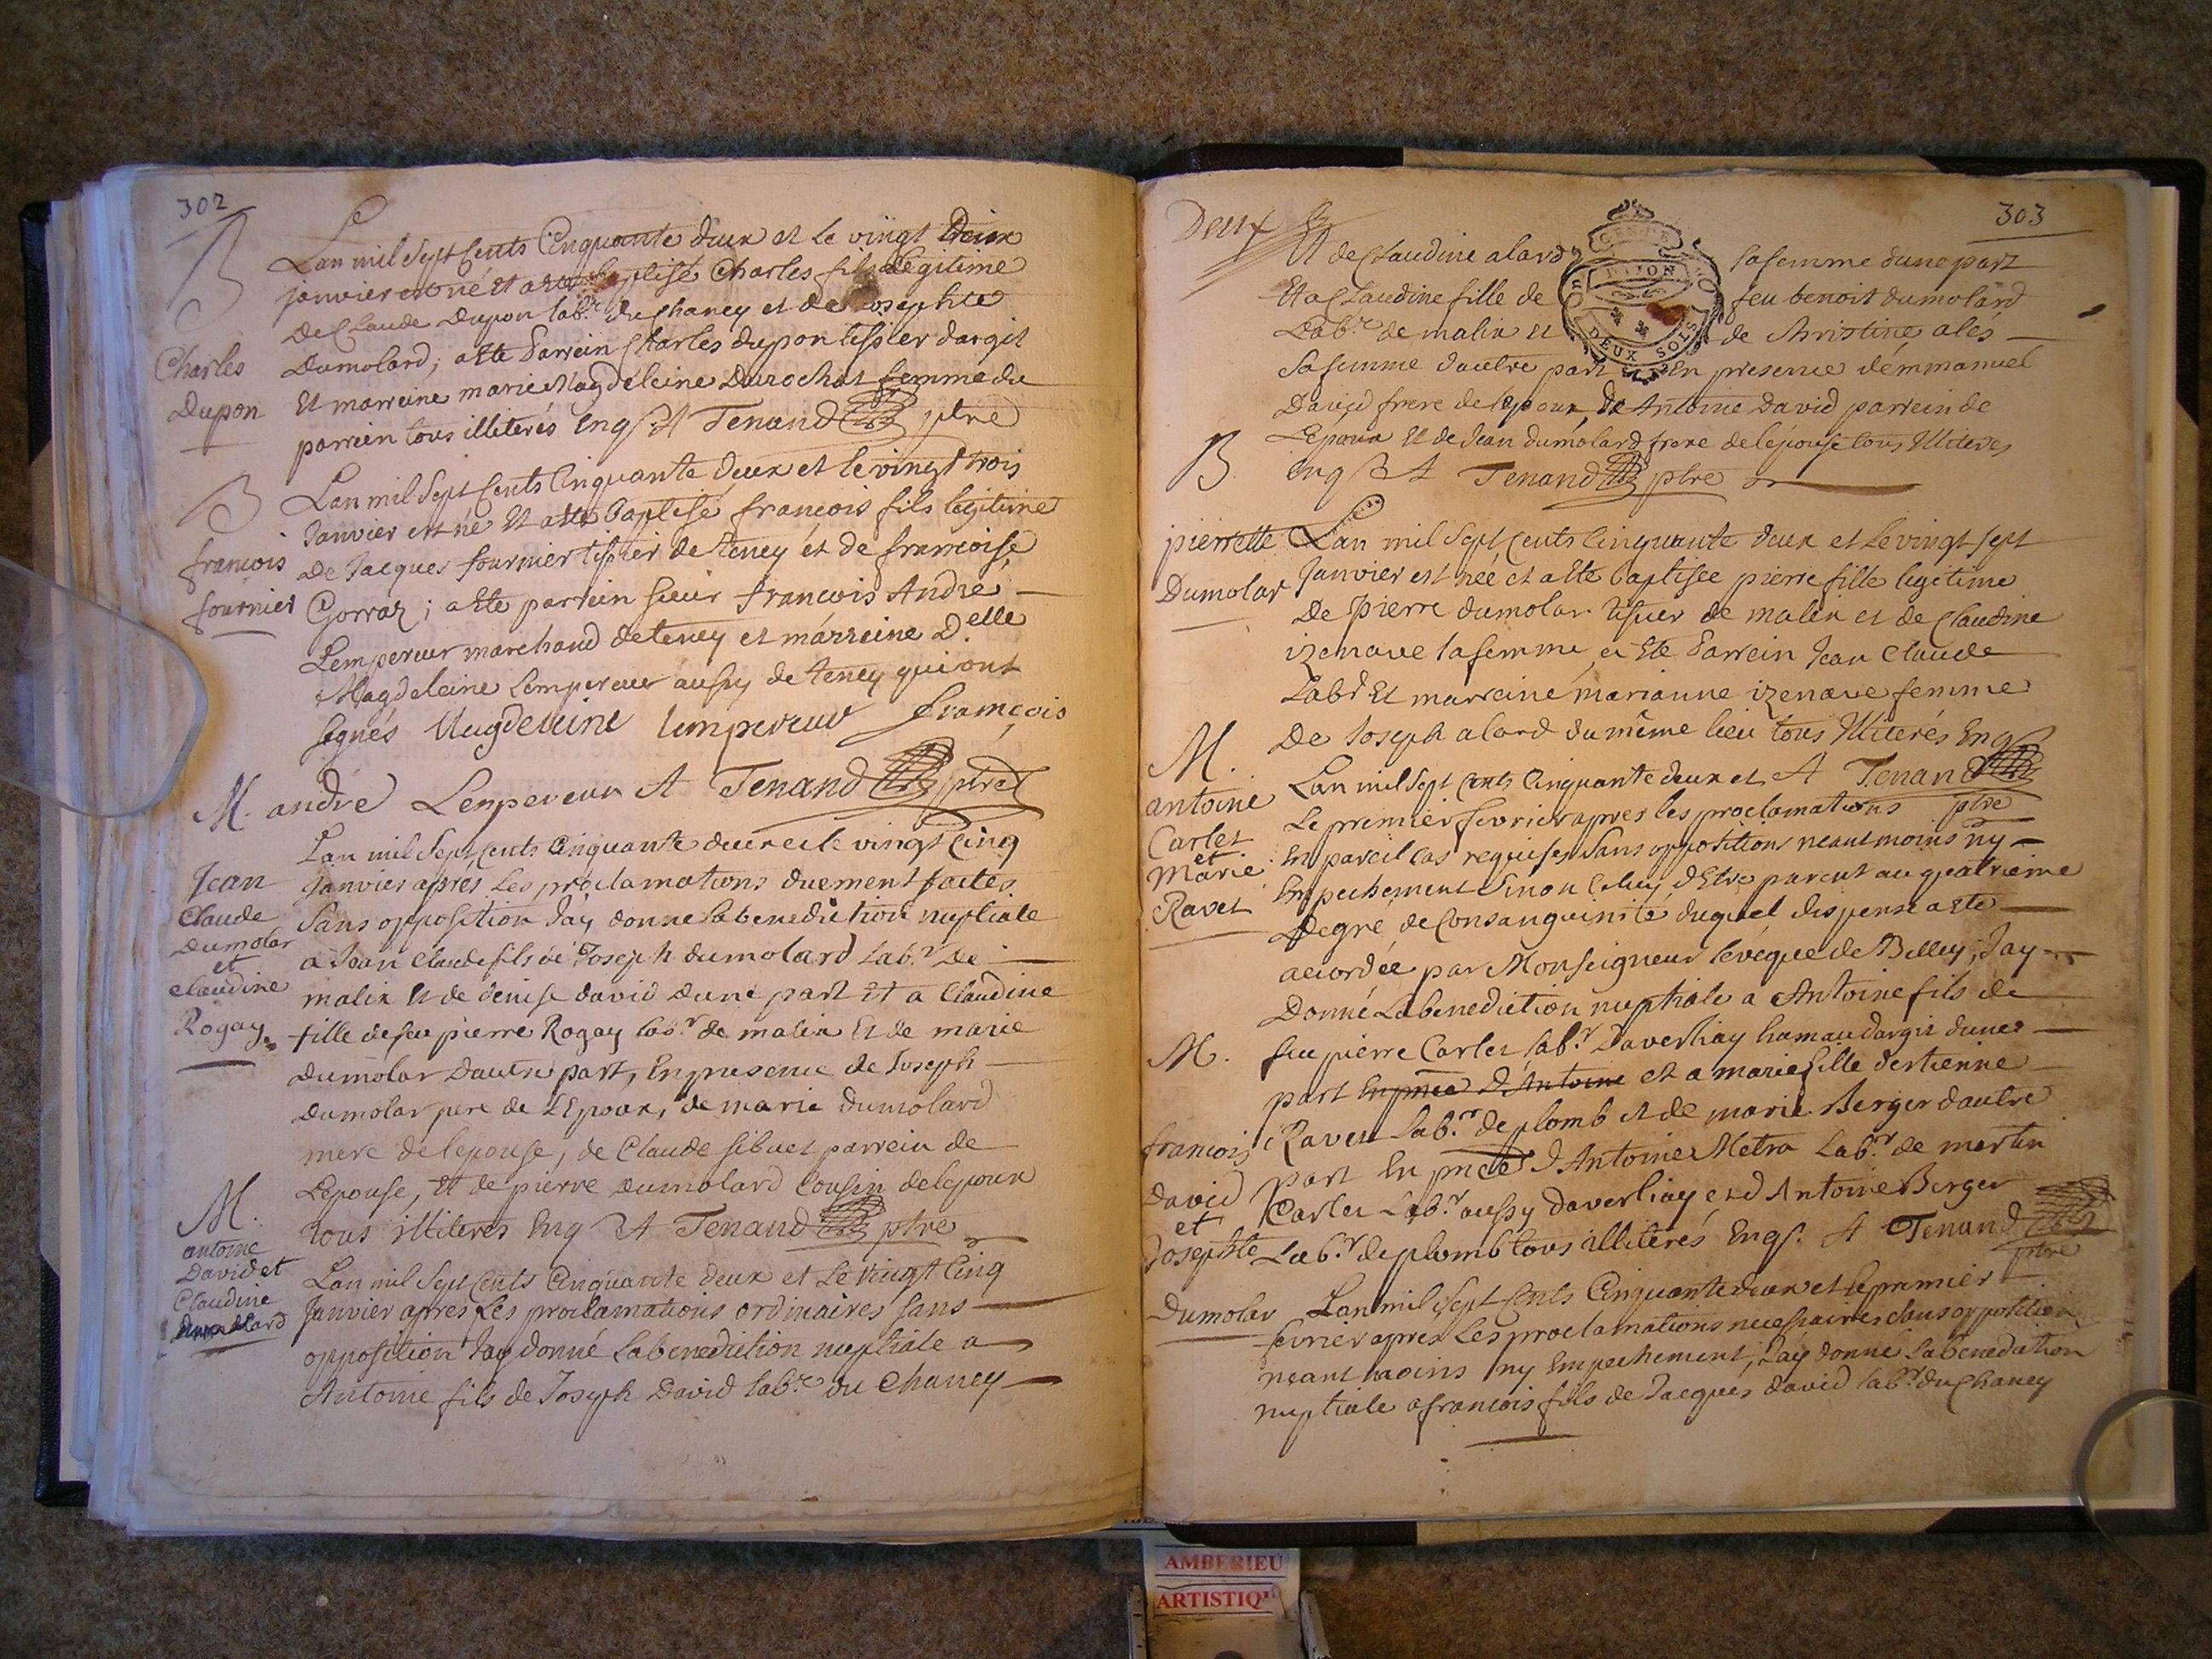 302
B
Charles
Dupon
Lan mil Sept Cents Cinquante deux et Le vingt
janvier est né et a eté baptisé Charles fils legitime
de Claude Dupon lab.r du Chaney et de Josephte
Dumolard; a eté Parrein Charles dupon tissier dargit
Et marreine marie Magdeleine Durochat femme du
parrien tous illiterés Enq. A Tenand ptre
B
francois
fournier
Lan mil Sept Cents Cinquante deux et le vingt trois
Janvier est né Et a eté baptisé francois fils legitime
De Jacques fournier tissier de teney et de francoise
Gorraz; a eté parrein sieur francois Andre
Lempereur marchand de teney et marreine D.elle
Magdeleine Lempereur aussy de teney qui ont
signés Magdeleine lempereur françois
andre Lempereur A Tenand ptre
M.
Jean
Claude
Dumolar
et
claudine
Rogay
Lan mil Sept Cents Cinquante deux et le vingt Cinq
Janvier apres Les proclamations duement faites
Sans opposition J'ay donné la benediction nuptiale
a Jean Claude fils de Joseph dumolard Lab.r de
malix Et de denise david dune part Et a Claudine
fille de feu pierre Rogay lab.r de malix Et de marie
Dumolar Dautre part, En presence de Joseph
Dumolar pere de L'Epoux, de marie dumolard
mere de lepouse, de Claude sibuet parrein de
Lepouse, et de pierre dumolard Cousin de lepoux
tous illiteres Enq Et A Tenand ptre
M.
antoine
David et
Claudine
Lan mil Sept Cents Cinquante deux et Le vingt Cinq
Janvier apres Les proclamations ordinaires sans
opposition Jay donné La benediction nuptiale a
Antoine fils de Joseph David lab.r du Chaney
303
Deux
Et de Claudine alard sa femme dune part
Et a Claudine fille de feu benoit dumolard
Lab.r de malix et de Christine alés
Sa femme dautre part En presence d'emmanuel
David frere de lepoux, de Antoine David parrein de
Lepoux Et de Jean dumolard frere de lépouse tous Illiteres
enq Et A Tenand ptre
DIJON
DEUX SOLS
B.
pierrette
Dumolar
Lan mil Sept Cents Cinquante deux et Le vingt sept
Janvier est née et a eté baptisee pierre fille legitime
De Pierre dumolar tissier de malix et de Claudine
izenave sa femme, a Eté Parrein Jean Claude
Labd Et marreine marianne izenave femme
De Joseph alard du même lieu tous Illiterés Enq
A Tenand
ptre
M.
antoine
Carlet
et
Marie
Ravet
Lan mil Sept Cents Cinquante deux et
Le premier fevrier apres les proclamations
En pareil Cas requises Sans opposition neantmoins ny
Empechement Sinon Celuy dEtre parent au quatrieme
Degré de Consanguinité duquel dispense a eté
accordée par Monseigneur levêque de Belley; Jay
Donné La benediction nuptiale a Antoine fils de
feu pierre Carlet lab.r Daverliay hamau dargit dune
part En pnce d Antoine et a marie fille destienne
Ravet Lab.r de plomb et de marie Berger dautre
part En pnce d Antoine Metra Lab.r de martin
Carlet Lab.r aussy daverliay, et d Antoine Berger
Lab.r de plomb tous illiterés Enq. A Tenand
ptre
M.
francois
David
et
Josephte
Dumolar
Lan mil Sept Cents Cinquante deux et le premier
fevrier apres Les proclamations necessaires Sans opposition
neant moins ny Empechement, Jay donné La benediction
nuptiale a francois fils de Jacques david lab.r du Chaney
AMBERIEU
ARTISTIQ